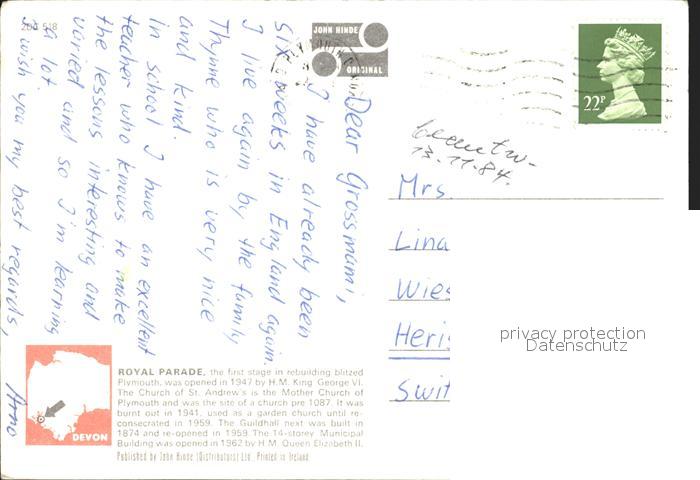 200 518
JOHN HINDE
ORIGINAL
22P
Dear Grossmami,
I have already been
six weeks in England again.
I live again by the family
Thynne who is very nice
and kind.
in school I have an excellent
teacher who knows to make
the lessons interesting and
varied and so I'm learning
a lot.
I wish you my best regards,
Arno
13-11-84.
Mrs.
Lina
Wies
Heris
Swit
privacy protection
Datenschutz
DEVON
ROYAL PARADE, the first stage in rebuilding blitzed
Plymouth, was opened in 1947 by H.M. King George VI.
The Church of St. Andrew's is the Mother Church of
Plymouth and was the site of a church pre 1087. It was
burnt out in 1941, used as a garden church until re-
consecrated in 1959. The Guildhall next was built in
1874 and re-opened in 1959. The 14-storey Municipal
Building was opened in 1962 by H.M. Queen Elizabeth II.
Published by John Hinde (Distributors) Ltd. Printed in Ireland